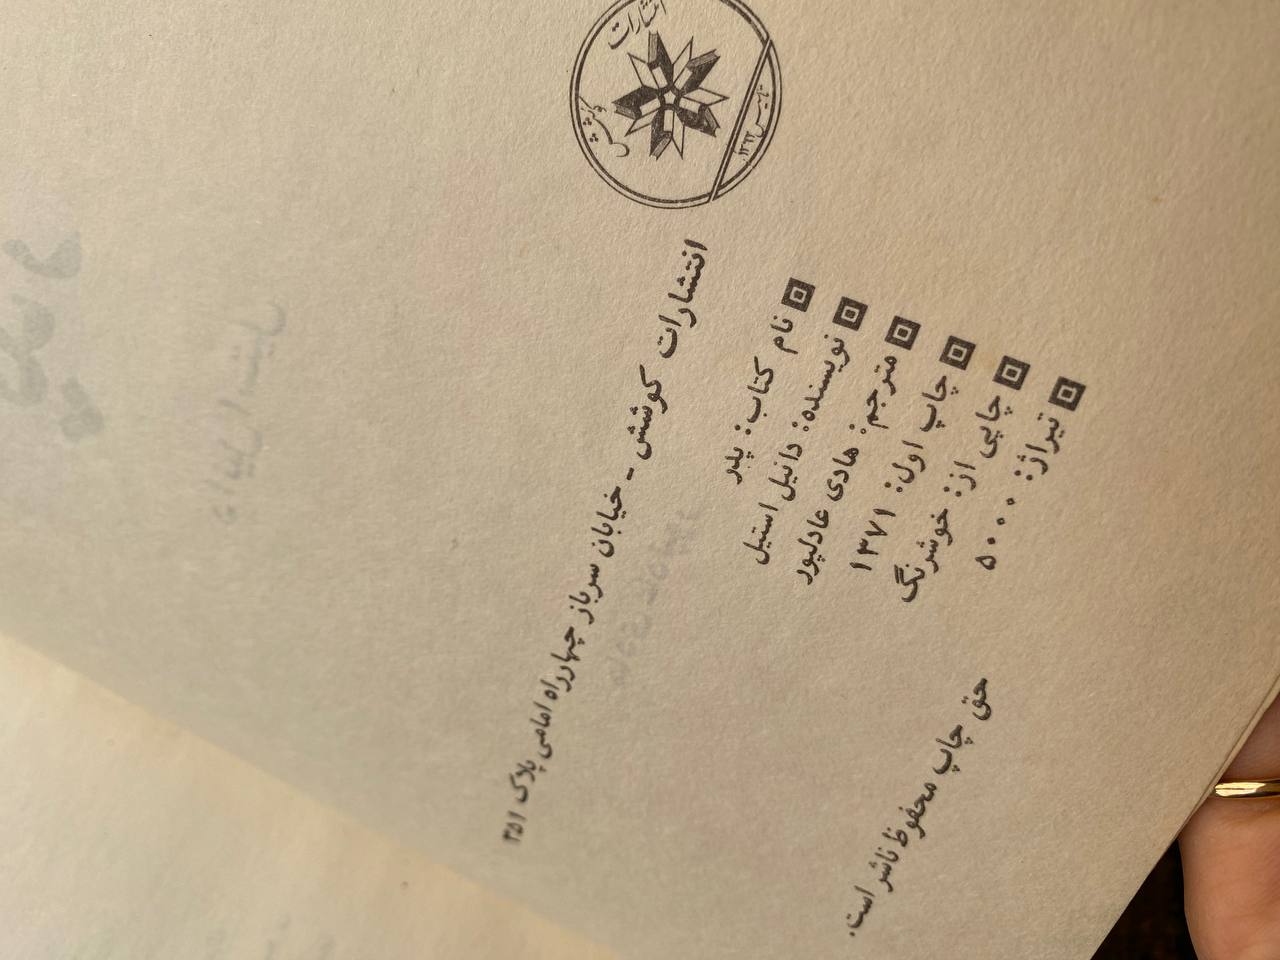 انتشارات
کوشش
تاسیس ۱۳۶۲
انتشارات کوشش - خیابان سرباز چهارراه امامی پلاک ۳۵۱
نام کتاب: پدر
نویسنده: دانیل استیل
مترجم: هادی عادلپور
چاپ اول: ۱۳۷۱
چاپی از: خوشرنگ
تیراژ: ۵۰۰۰
حق چاپ محفوظ ناشر است.